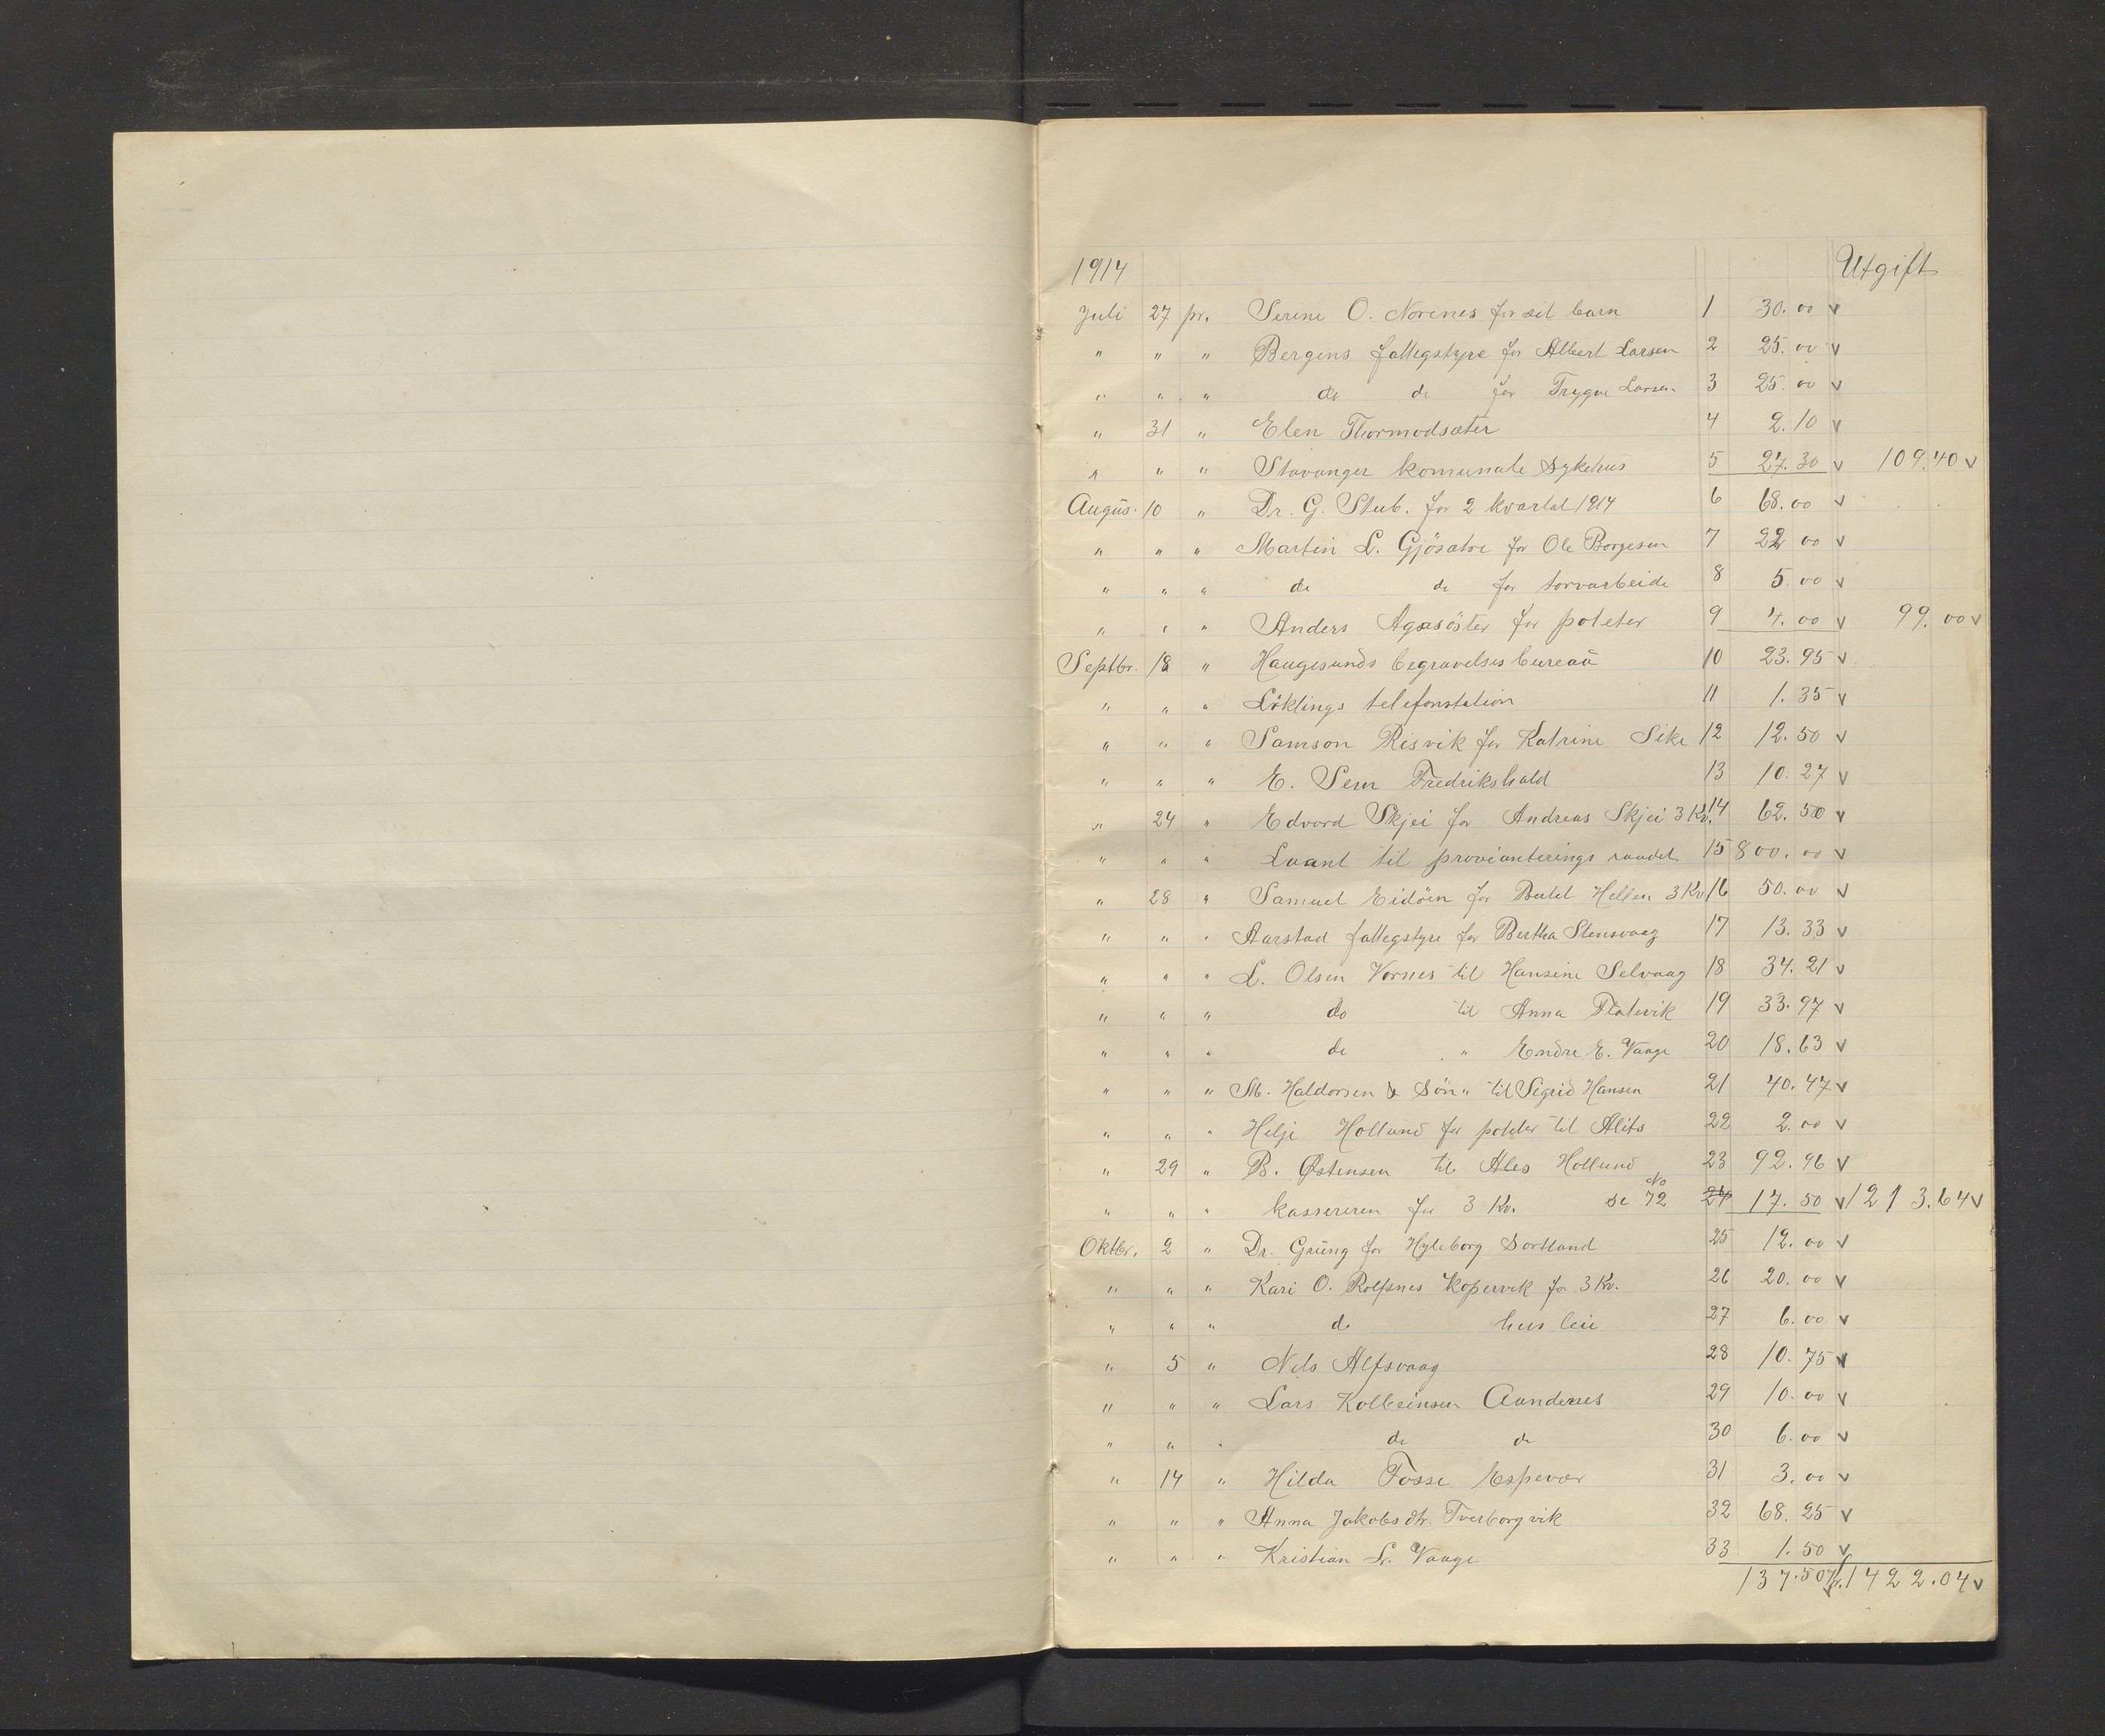 1914 Utgift
Juli 27 pr. Serine O. Norenes for sit barn 1 30.00 v
" " " Bergens fattegstyre for Albert Larsen 2 25.00 v
" " " do do for Trygve Larsen 3 25.00 v
" 31 " Elen Thormodsæter 4 2.10 v
" " " Stavanger komunale sykehus 5 27.30 v 109.40 v
Augus. 10 " Dr. G. Stub. for 2 kvartal 1914 6 68.00 v
" " " Martin L. Gjösætre for Ole Borgesen 7 22 00 v
" " " do do for torvarbeide 8 5.00 v
" " " Anders Agasöster for poteter 9 4.00 v 99.00 v
Septbr. 18 " Haugesunds begravelsesbureaü 10 23.95 v
" " " Löklings telefonstation 11 1.35 v
" " " Samson Risvik for Katrine Sike 12 12.50 v
" " " E. Sem Fredrikshald 13 10.27 v
" 24 " Edvard Skjei for Andreas Skjei 3 Kv. 14 62.50 v
" " " Laant til provianterings raadet 15 800.00 v
" 28 " Samuel Eidöen for Hellen 3 Kv 16 50.00 v
" " " Aarstad fattegstyre for Bertha Stensvaag 17 13.33 v
" " " L. Olsen Vornes til Hansine Selvaag 18 34.21 v
" " " do til Anna Flatevik 19 33.97 v
" " " do " Endre E. Vaage 20 18.63 v
" " " M. Haldorsen & Sön " til Sigrid Hansen 21 40.47 v
" " " Helje Hollund for poteter til Alits 22 2.00 v
" 29 " B. Østensen til Ales Hollund 23 92.96 v
" " " kassereren for 3 Kv. se No 72 24 17.50 v 1213.64 v
Oktbr. 2 " Dr. Grüng for Hyleborg Sortland 25 12.00 v
" " " Kari O. Rolfsnes Kopervik for 3 Kv. 26 20.00 v
" " " do hus leie 27 6.00 v
" 5 " Nils Alfsvaag 28 10.75 v
" " " Lars Kolbeinsen Aandernes 29 10.00 v
" " " do do 30 6.00 v
" 14 " Hilda Fosse Espevær 31 3.00 v
" " " Anna Jakobsdtr. Tverborgvik 32 68.25 v
" " " Kristian L. Vaage 33 1.50 v
137.50 v 1422.04 v